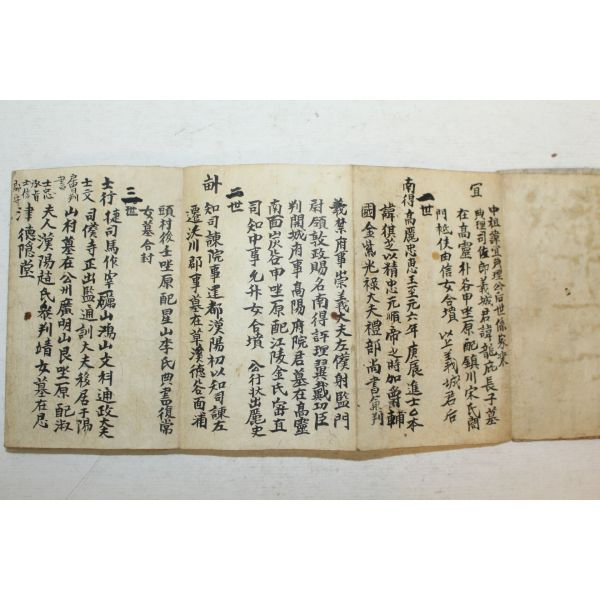 中祖諱宜典理公后世係家乘
典理司佐郎義城君諱龍庇長子墓
宜
在高靈朴谷甲坐原配鎮川宋氏閤
門祗使由信女合墳 以上義城君后
一世
南得高麗忠惠王至元六年庚辰進士本
諱祺芝以精忠元順帝之時加爵輔
國金紫光祿大夫禮部尚書兼判
義禁府事崇義大夫左僕射監門
尉領敦政賜名南得評理翼戴功臣
判開城府事高陽府院君墓在高靈
南面炭谷甲坐原配江陵金氏
司知中事允升女合墳 公行狀出麗史
二世
知司諫院事逮都漢陽初以知司諫左
遷陜川郡事墓在草溪德谷面浦
頭村後壬坐原配星山李氏典書復常
女墓合封
三世
士行 捷司馬作宰礪山鴻山文科通政大夫
士文 司僕寺正出監通訓大夫移居于陽
山村墓在公州廣明山艮坐原配淑
夫人漢陽趙氏參判靖女墓在思
津德隱堂